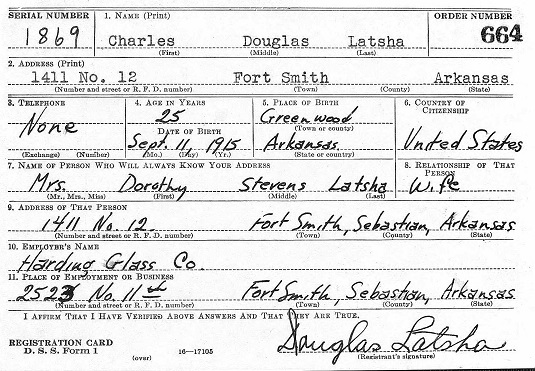 SERIAL NUMBER 1. NAME (Print) ORDER NUMBER
1869 Charles Douglas Latsha 664
(First) (Middle) (Last)
2. ADDRESS (Print)
1411 No. 12 Fort Smith Arkansas
(Number and street or R. F. D. number) (Town) (County) (State)
3. TELEPHONE 4. AGE IN YEARS 5. PLACE OF BIRTH 6. COUNTRY OF CITIZENSHIP
None 25 Greenwood
(Town or county)
DATE OF BIRTH
Sept. 11, 1915 Arkansas United States
(Exchange) (Number) (Mo.) (Day) (Yr.) (State or country)
7. NAME OF PERSON WHO WILL ALWAYS KNOW YOUR ADDRESS 8. RELATIONSHIP OF THAT PERSON
Mrs. Dorothy Stevens Latsha Wife
(Mr., Mrs., Miss) (First) (Middle) (Last)
9. ADDRESS OF THAT PERSON
1411 No. 12 Fort Smith, Sebastian, Arkansas
(Number and street or R. F. D. number) (Town) (County) (State)
10. EMPLOYER'S NAME
Harding Glass Co.
11. PLACE OF EMPLOYMENT OR BUSINESS
No. 11th Fort Smith, Sebastian, Arkansas
(Number and street or R. F. D. number) (Town) (County) (State)
I AFFIRM THAT I HAVE VERIFIED ABOVE ANSWERS AND THAT THEY ARE TRUE.
REGISTRATION CARD
D. S. S. Form 1 (over) 16—17105
Douglas Latsha
(Registrant's signature)